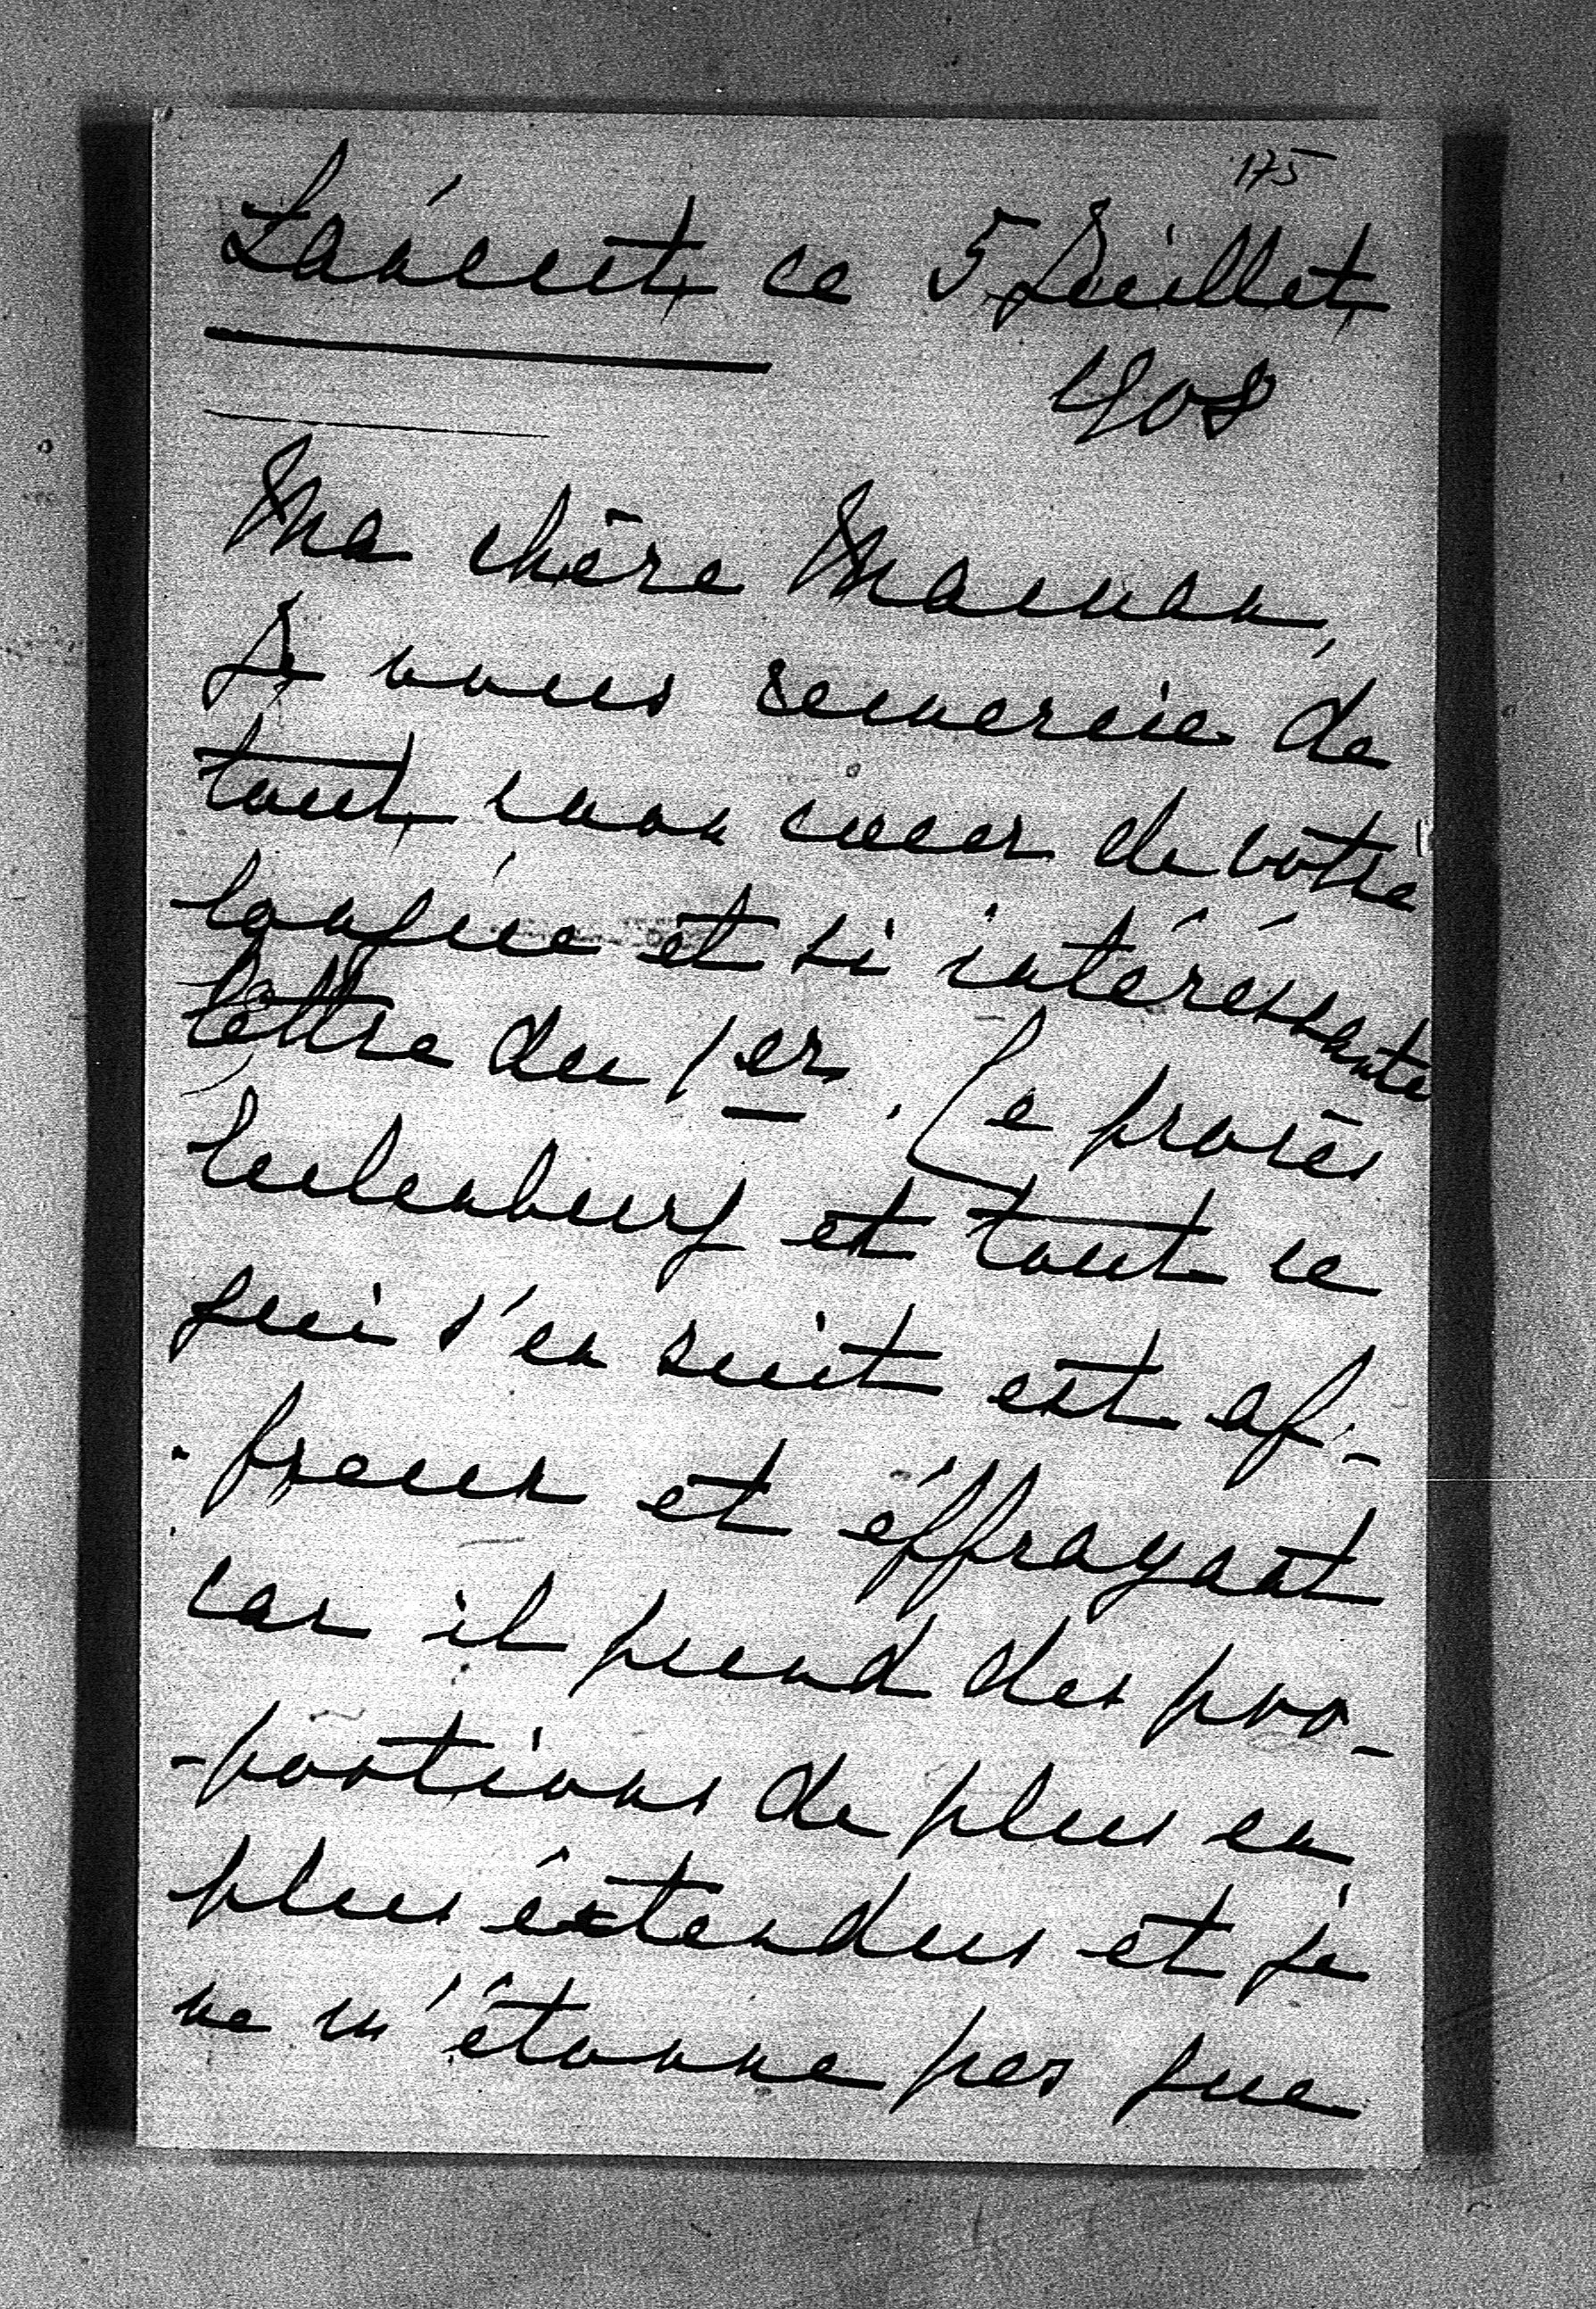 175
Laócut, ce 5 Juillet
1908
Ma chère Maman,
Je vous remercie de
tout mon cœur de votre
longue et si intéréssante
lettre du 1er. Le procès
Eulenburg et tout ce
qui s'en suit est af-
freux et éffrayant
car il prend des pro-
-portions de plus en
plus éxtendues et je
ne m'étonne pas que